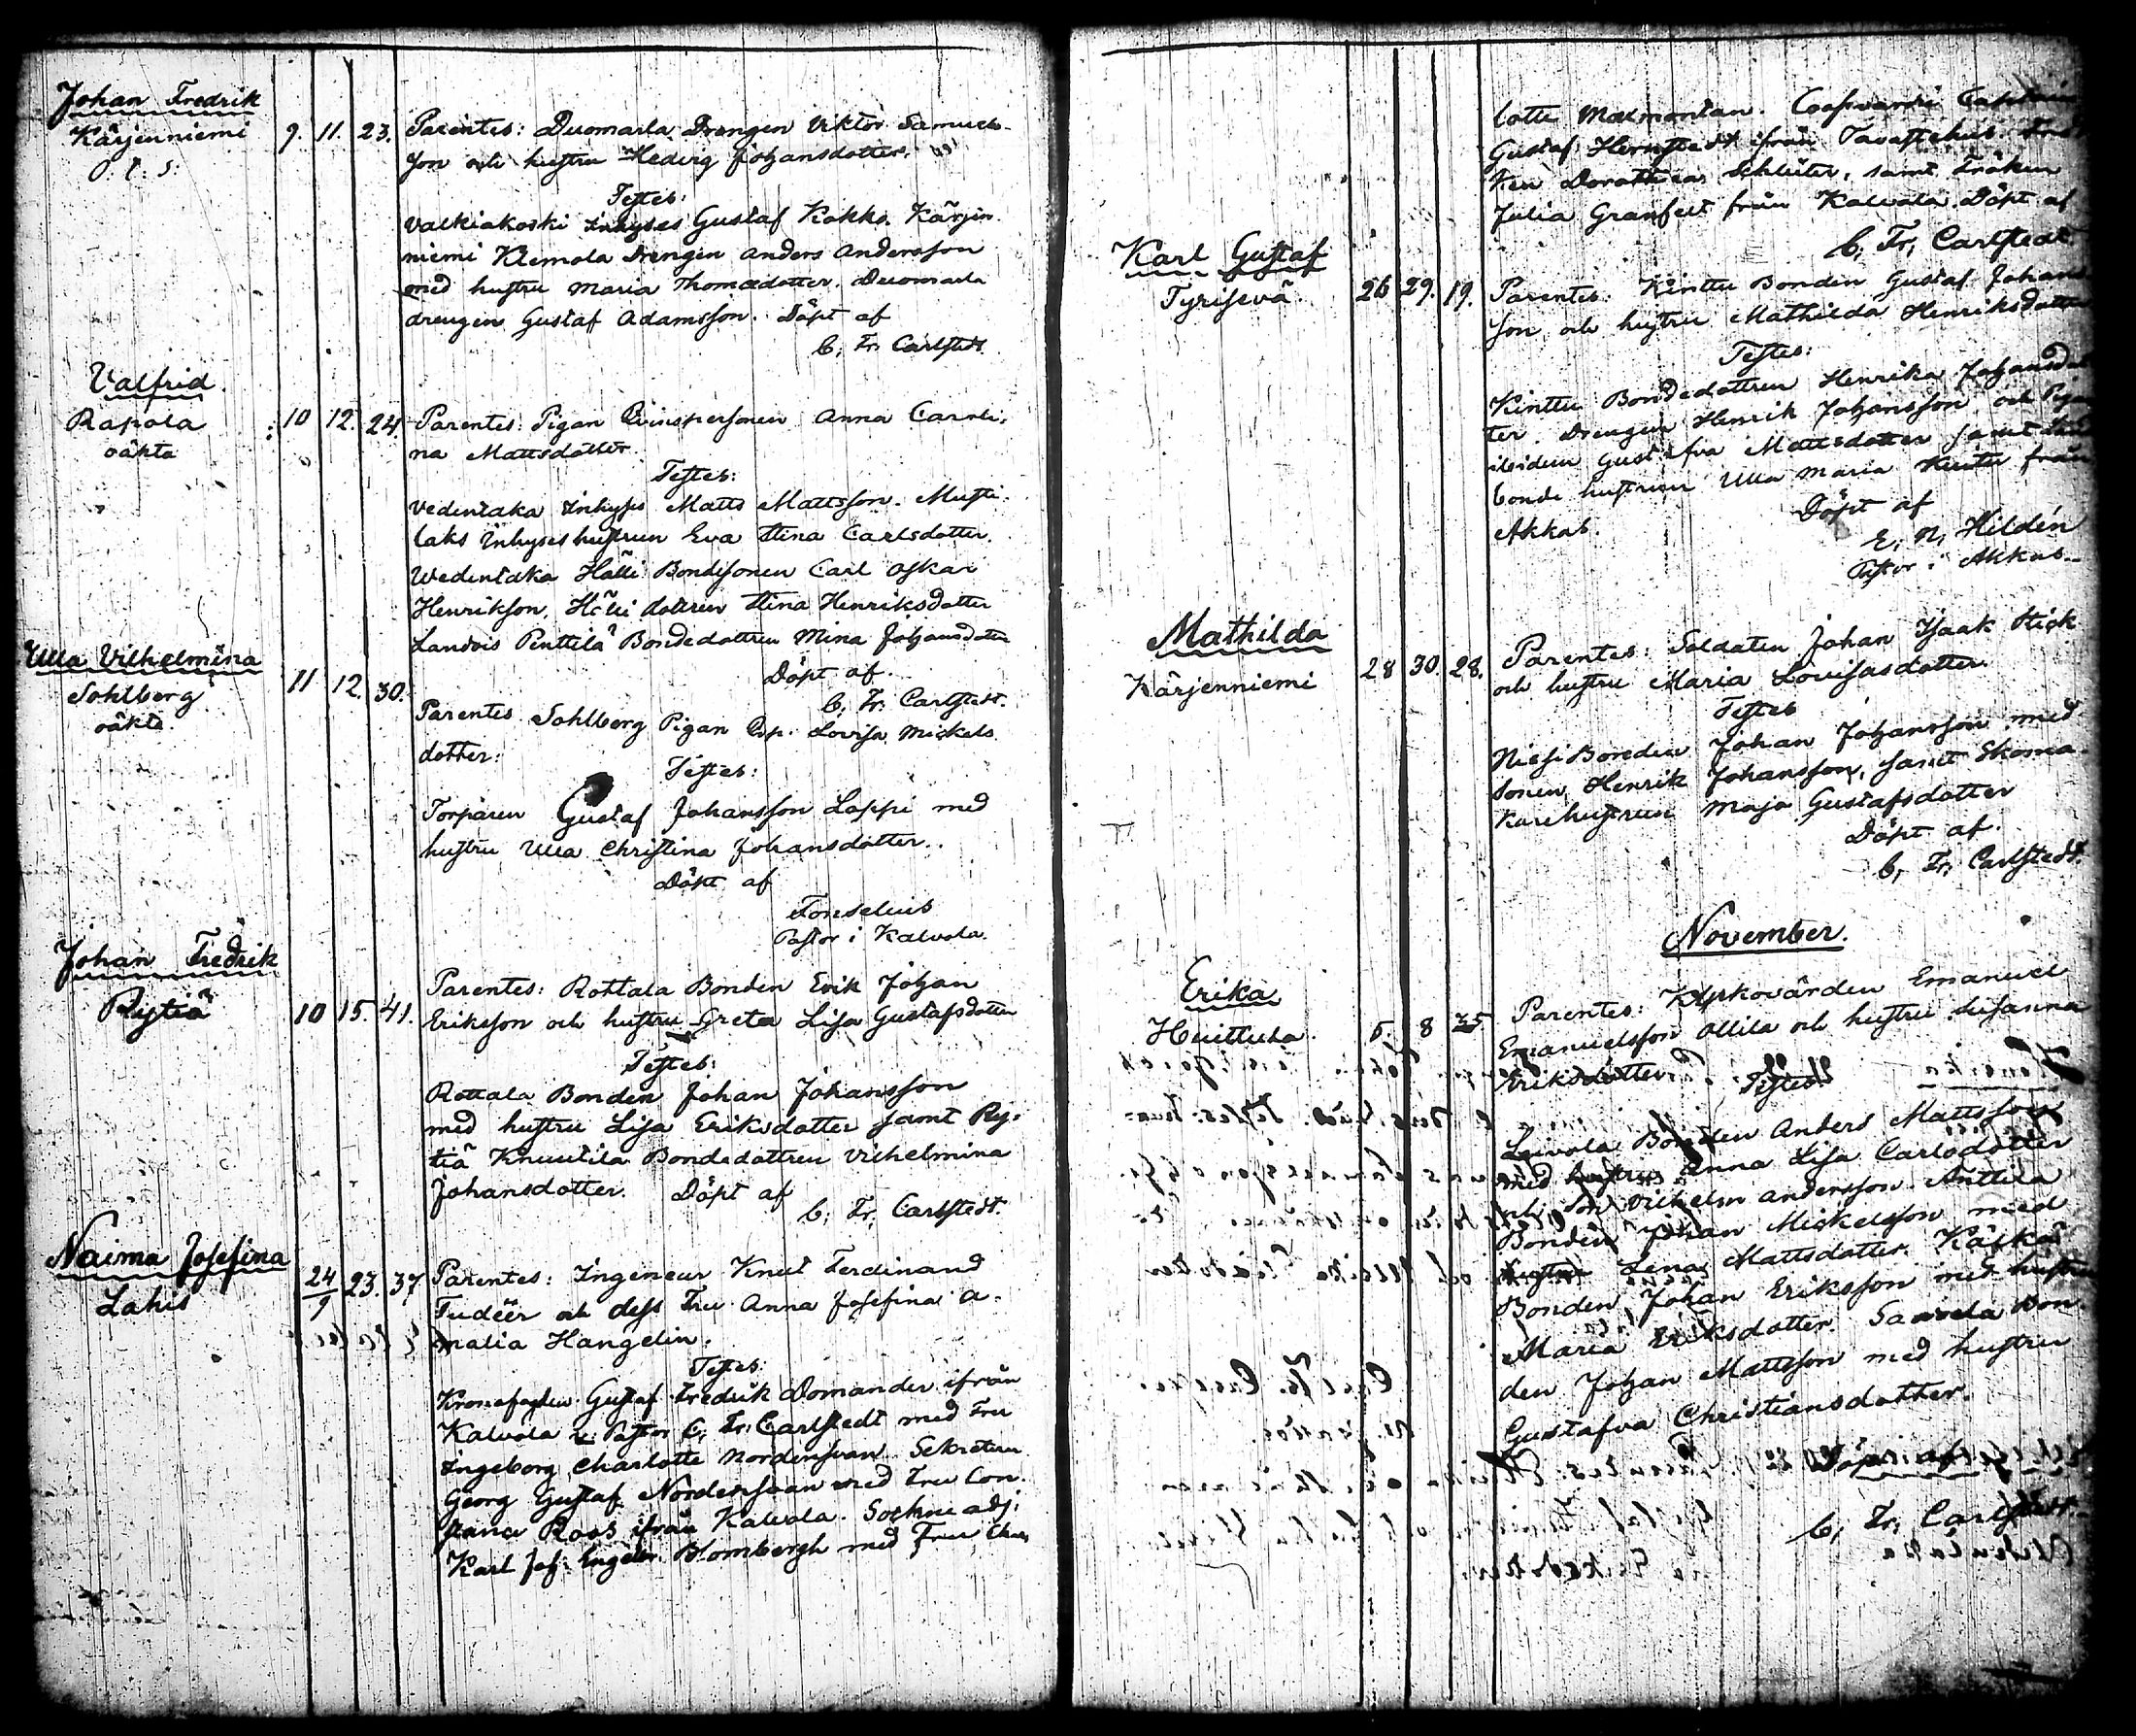 Johan Fredrik
Kärjenniemi 9. 11. 23. Parentes: Duomarla Drengen Viktor Samuels-
son och hustru Hedvig Johansdotter.
Testes:
Valkiakoski Inhyses Gustaf Kokko. Kärjen
niemi Klemola Drengen Anders Andersson
med hustru Maria Thomædotter. Duomarla
drengen Gustaf Adamsson. Döpt af
C. Fr. Carlstedt.
Valfrid.
Rapola 10 12. 24. Parentes: Pigan Qvinspersonen Anna Caroli-
oäkta
na Mattsdotter.
Testes:
Vedentaka Inhyses Matts Mattsson. Musti-
laks Inhyses hustrun Eva Stina Carlsdotter.
Wedentaka Hälli Bondesonen Carl Oskar
Henrikson, Hälli dottren Stina Henriksdotter
Landois Penttilä Bondedottren Mina Johansdotter
Döpt af.
C. Fr. Carlstedt.
Ulla Vilhelmina
Sohlberg 11 12. 30.
oäkta
Parentes Sohlberg Pigan Qvp. Lovisa Mickels
dotter:
Testes:
Torparen Gustaf Johansson Lappi med
hustru Ulla Christina Johansdotter.
Döpt af
Fonselius
Pastor i Kalvola.
Johan Fredrik
Rytiä 10 15. 41. Parentes: Rottala Bonden Erik Johan
Eriksson och hustru Greta Lisa Gustafsdotter
Testes:
Rottala Bonden Johan Johansson
med hustru Lisa Eriksdotter samt Ry-
tiä Knuutila Bondedottren Vilhelmina
Johansdotter. Döpt af
C. Fr. Carlstedt.
Naima Josefina
Lahis 24/9 23. 37 Parentes: Ingenieur Knut Ferdinand
Tudeer och dess Fru Anna Josefina A-
malia Hangelin.
Testes:
Kronofogden Gustaf Fredrik Domander ifrån
Kalvola v. Pastor C. Fr. Carlstedt med Fru
Ingeborg Charlotte Nordensvan. Sekreteren
Georg Gustaf Nordensvan med Fru Con-
stance Roos ifrån Kalvola. Sockne adj:
Karl Jof: Engelb: Blombergh med Fru Char
lotte Malmontan.
Gustaf Hernstedt ifrån Tavastehus.
ken Dorathea Schlüter, samt Fröken
Julia Granfelt från Kalvola. Döpt af
C. Fr. Carlstedt
Karl Gustaf
Tyrisevä 26 29. 19. Parentes: Kinttu Bonden Gustaf Johans
son och hustru Mathilda Henriksdotter
Testes:
Kinttu Bondedottren Henrika Johansdot
ter. Drengen Henrik Johansson och Pigan
Gustafva Mattsdotter samt
bonde hustrun Ulla Maria från
Akkas. Döpt af
E. N. Hildén
Pastor i Akkas.
Mathilda
Kärjenniemi 28 30. 28. Parentes: Soldaten Johan Isaak Stick
och hustru Maria Lovisasdotter.
Testes
Niesi Bonden Johan Johansson med
Sonen Henrik Johansson, samt Skoma-
karehustrun Maja Gustafsdotter
Döpt af.
C. Fr. Carlstedt.
November.
Erika
Huittula 5. 8 35 Parentes: Kyrkovärden Emanuel
Emanuelsson Ollila och hustru Susanna
Eriksdotter Testes
Leivola Bonden Anders Mattsson
med hustru Anna Lisa Carlsdotter
och Son Vilhelm Andersson. Anttila
Bonden Johan Mickelsson med
hustru Lena Mattsdotter. Käskä
Bonden Johan Eriksson med hustru
Maria Eriksdotter. Saarela Bon
den Johan Mattsson med hustru
Gustafva Christiansdotter.
Döpt af
C. Fr. Carlstedt.